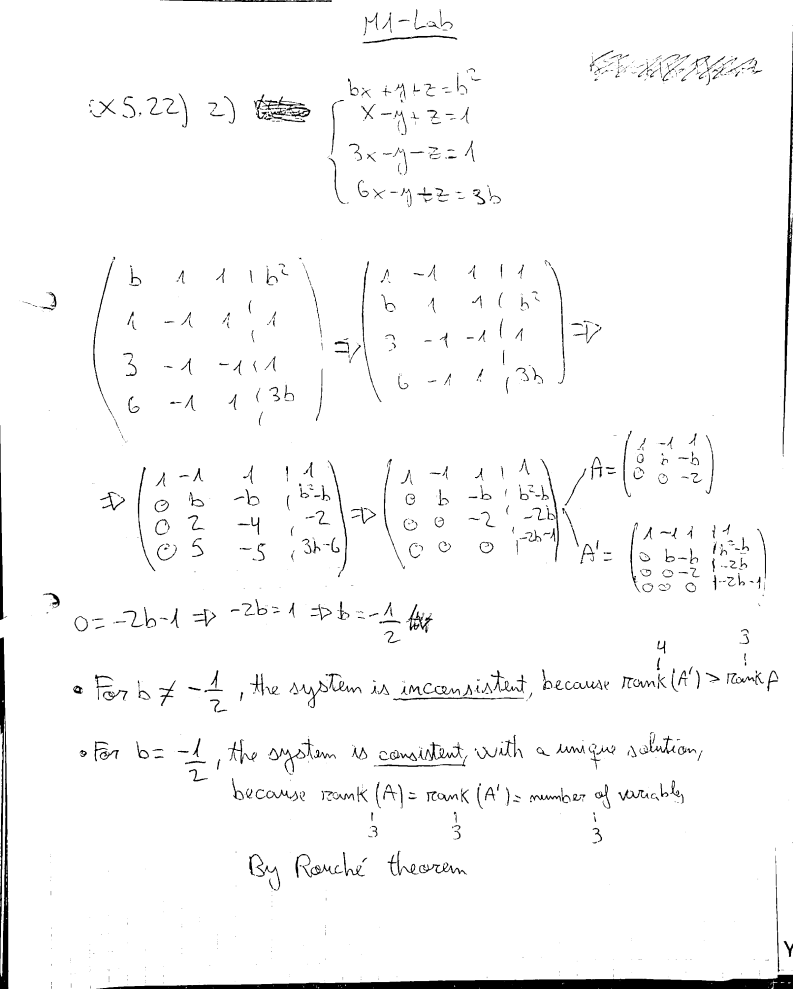 M1-Lab
(x 5.22) 2)
bx + y + z = b²
x - y + z = 1
3x - y - z = 1
6x - y + z = 3b
( b 1 1 | b² ) ⇒ ( 1 -1 1 | 1 ) ⇒
( 1 -1 1 | 1 ) ( b 1 1 | b² )
( 3 -1 -1 | 1 ) ( 3 -1 -1 | 1 )
( 6 -1 1 | 3b ) ( 6 -1 1 | 3b )
⇒ ( 1 -1 1 | 1 ) ⇒ ( 1 -1 1 | 1 )
( 0 b -b | b²-b ) ( 0 b -b | b²-b )
( 0 2 -4 | -2 ) ( 0 0 -2 | -2b )
( 0 5 -5 | 3b-6 ) ( 0 0 0 | -2b-1 )
A = ( 1 -1 1 )
( 0 b -b )
( 0 0 -2 )
A' = ( 1 -1 1 | 1 )
( 0 b -b | b²-b )
( 0 0 -2 | -2b )
( 0 0 0 | -2b-1 )
0 = -2b-1 ⇒ -2b = 1 ⇒ b = -1/2
4 3
• For b ≠ -1/2, the system is inconsistent, because rank (A') > rank A
• For b = -1/2, the system is consistent, with a unique solution,
because rank (A) = rank (A') = number of variables
3 3 3
By Rouché theorem
Y